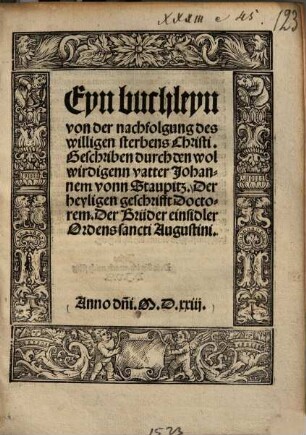 XXXIII e 45.
123
Eyn buchleyn
von der nachfolgung des
willigen sterbens Christi.
Geschriben durch den wol
wirdigenn vatter Johan-
nem vonn Staupitz. Der
heyligen geschrifft Docto-
rem. Der Brüder einsidler
Ordens sancti Augustini.
Anno dñi. M. D. xxiij.
1523